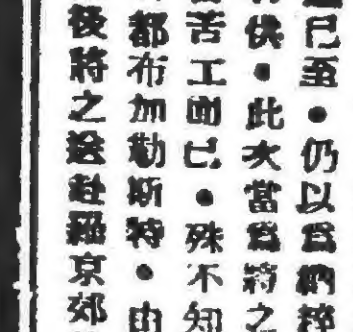 已至●仍以爲納粹
快●此次當爲將之
苦工而已●殊不知
都布加勒斯特●由
後將之送赴羅京郊